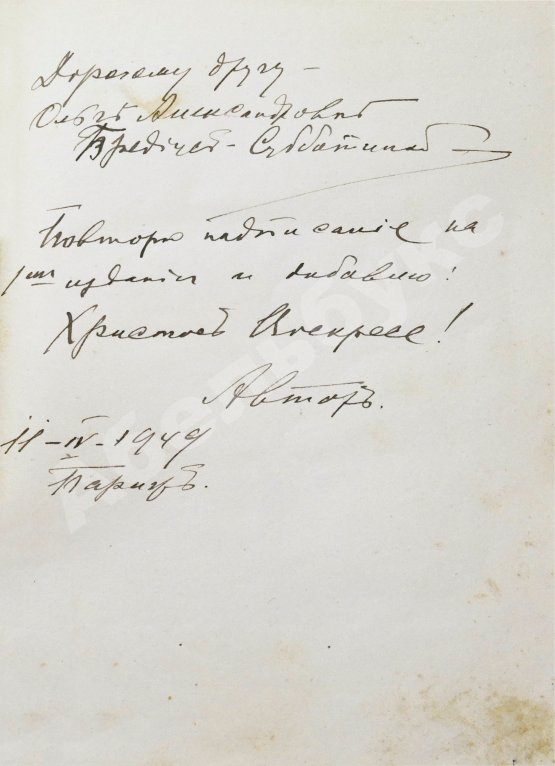 Дорогому другу –
Ольгѣ Александровнѣ
Бредіусъ-Субботиной
Повторю надписаніе на
1ом изданіи и добавлю:
Христосъ Воскресе!
Авторъ.
11-IV-1949
Парижъ.